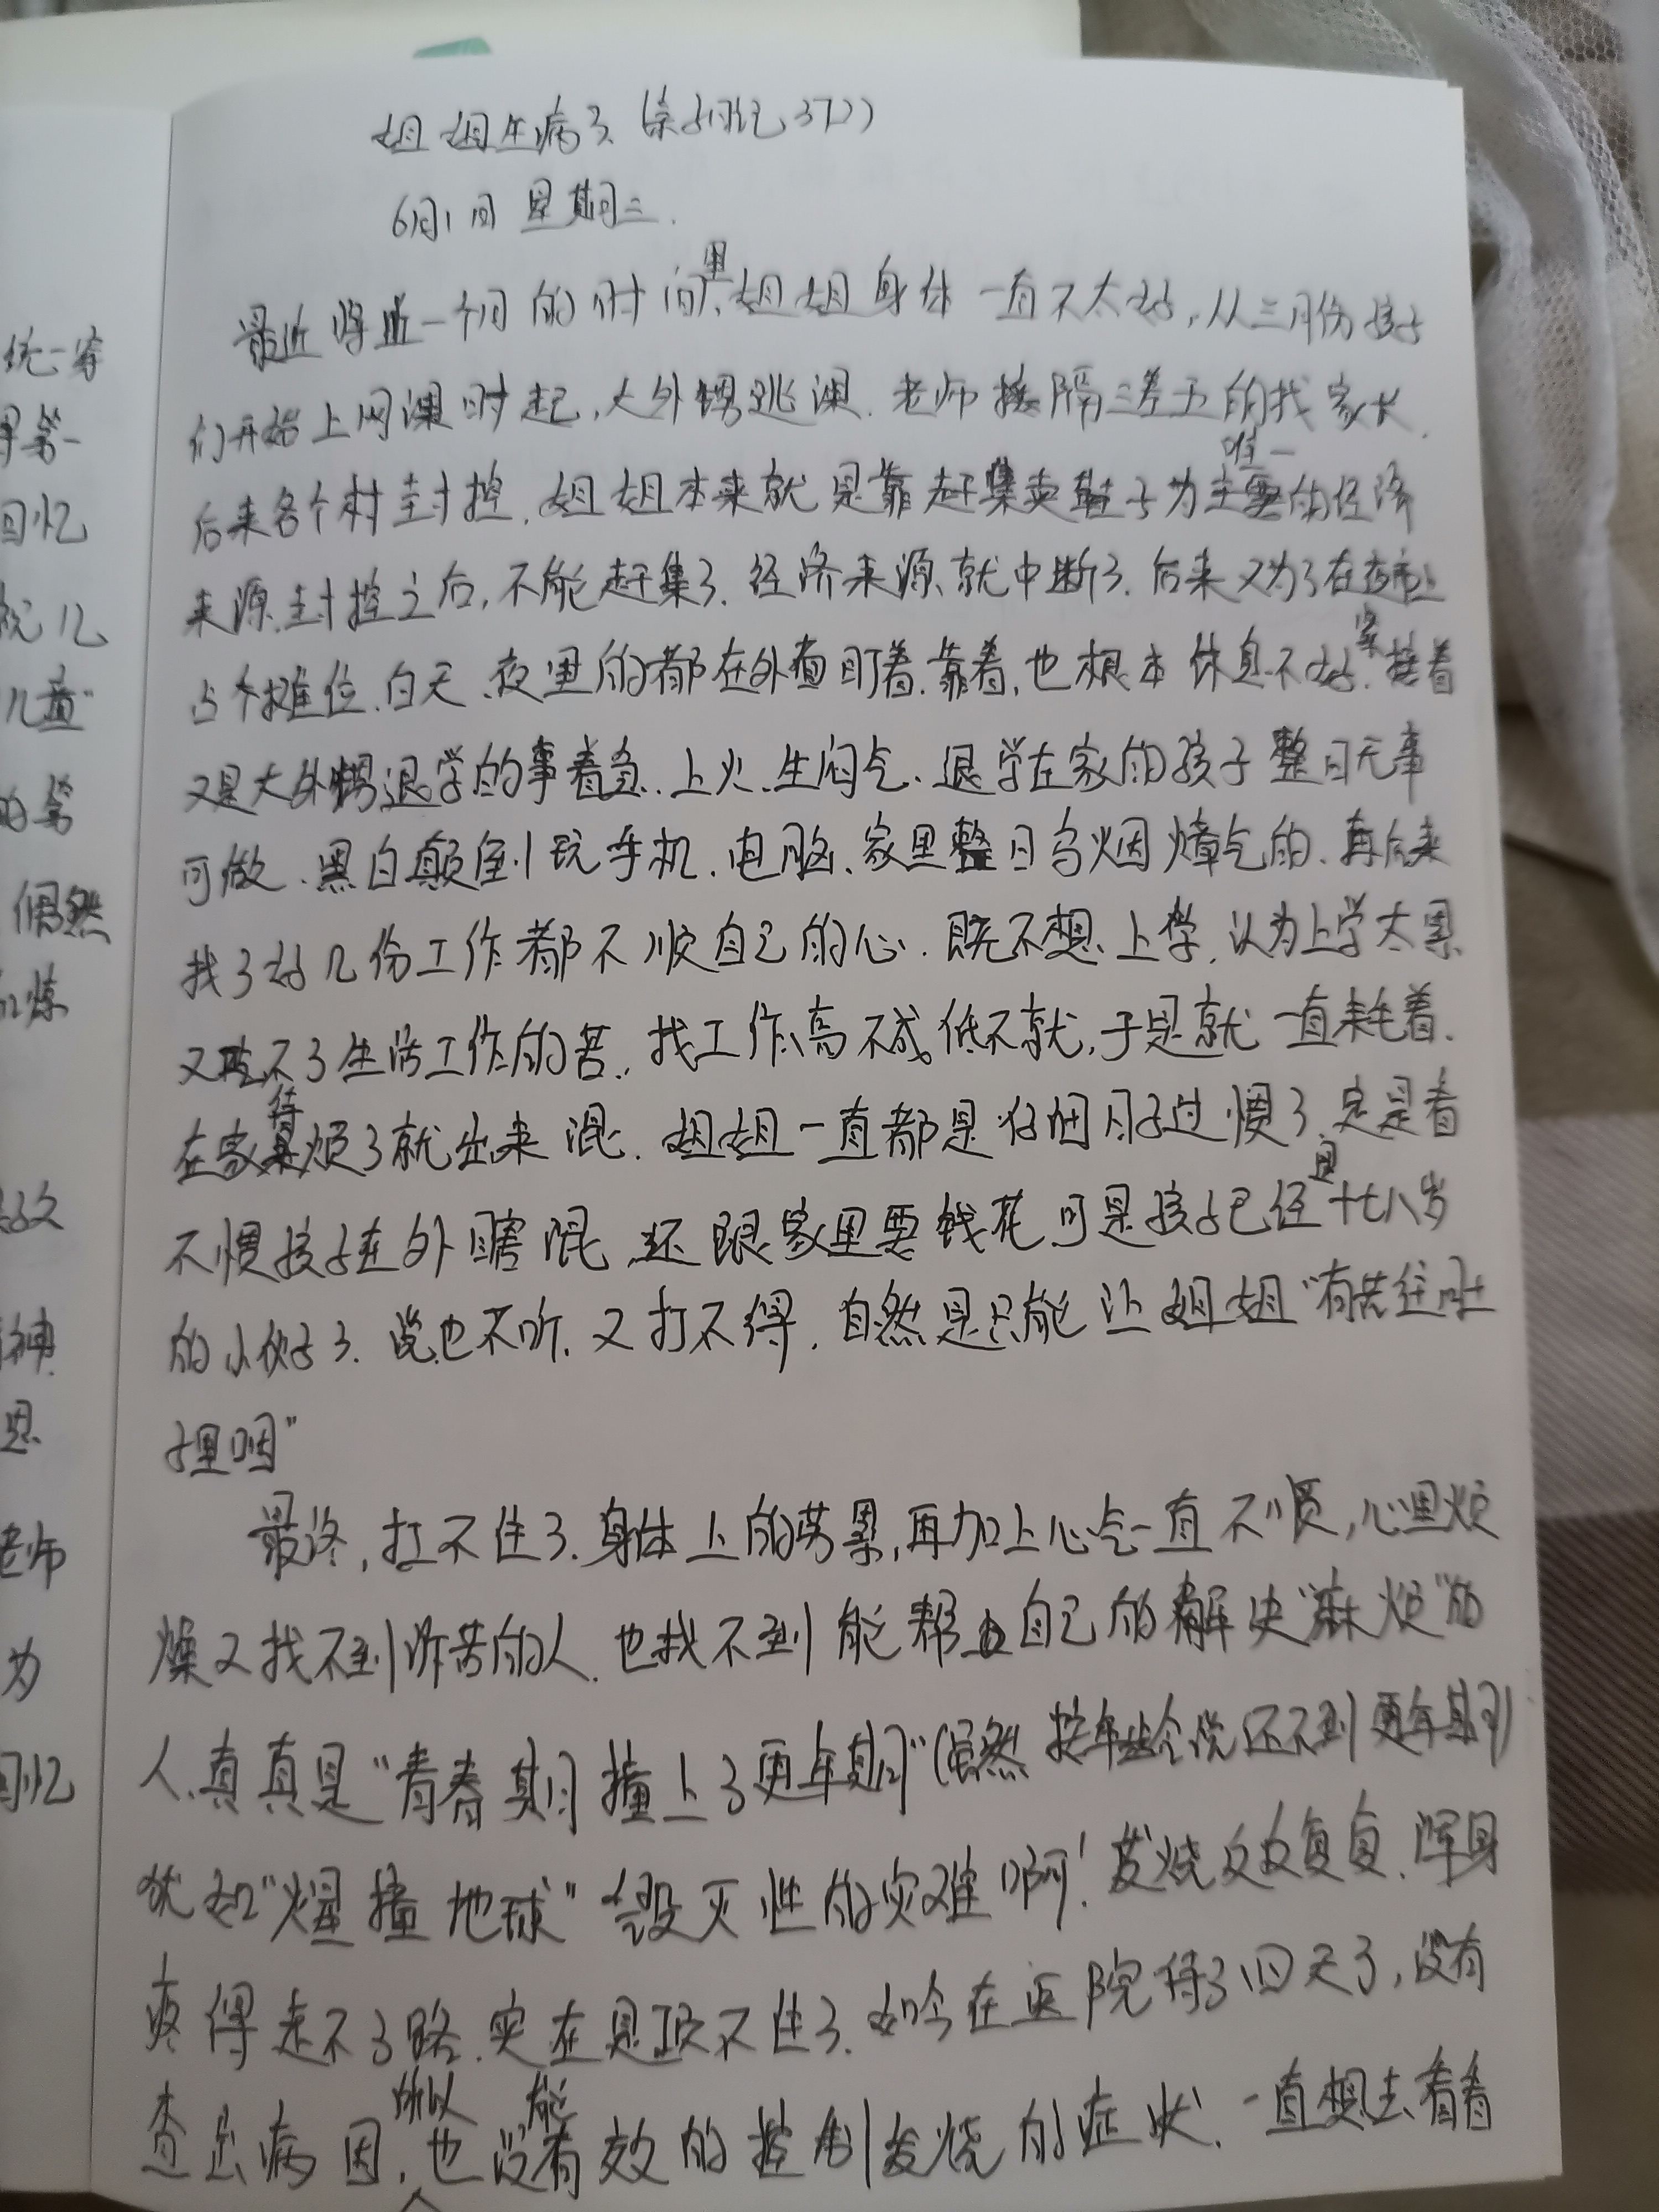 姐姐生病了（亲子日记37）
6月1日 星期三.
最近将近一个月的时间里,姐姐身体一直不太好,从三月份孩子
们开始上网课时起,大外甥逃课.老师接隔三差五的找家长.
后来各个村封控,姐姐本来就是靠赶集卖鞋子为唯一的经济
来源.封控之后,不能赶集了.经济来源就中断了.后来又为了在夜市上
占个摊位.白天、夜里的都在外面盯着.靠着,也根本休息不好.紧接着
又是大外甥退学的事着急、上火、生闷气、退学在家的孩子整日无事
可做、黑白颠倒玩手机、电脑、家里整日乌烟瘴气的、再后来
找了好几份工作都不顺自己的心.既不想上学,认为上学太累
又吃不了生活工作的苦.找工作高不成低不就,于是就一直耗着.
在家待烦了就出来混.姐姐一直都是仔细日子过惯了.定是看
不惯孩子在外瞎混,还跟家里要钱花.可是孩子已经是十七八岁
的小伙子了.说也不听.又打不得.自然是只能让姐姐"有苦往肚
子里咽"
最终,扛不住了.身体上的劳累,再加上心气一直不顺,心里烦
燥又找不到诉苦的人.也找不到能帮自己的解决"麻烦"的
人.真真是"青春期撞上了更年期"(虽然按年龄说还不到更年期)
犹如"火星撞地球"毁灭性的灾难啊!发烧反反复复.浑身
疼得走不了路.实在是顶不住了.如今在医院待了四天了,没有
查出病因,所以也没能有效的控制发烧的症状.一直想去看看
统一穿
第一
回忆
说儿
儿童"
的第
偶然
炼
好文
神
思
老师
为
回忆